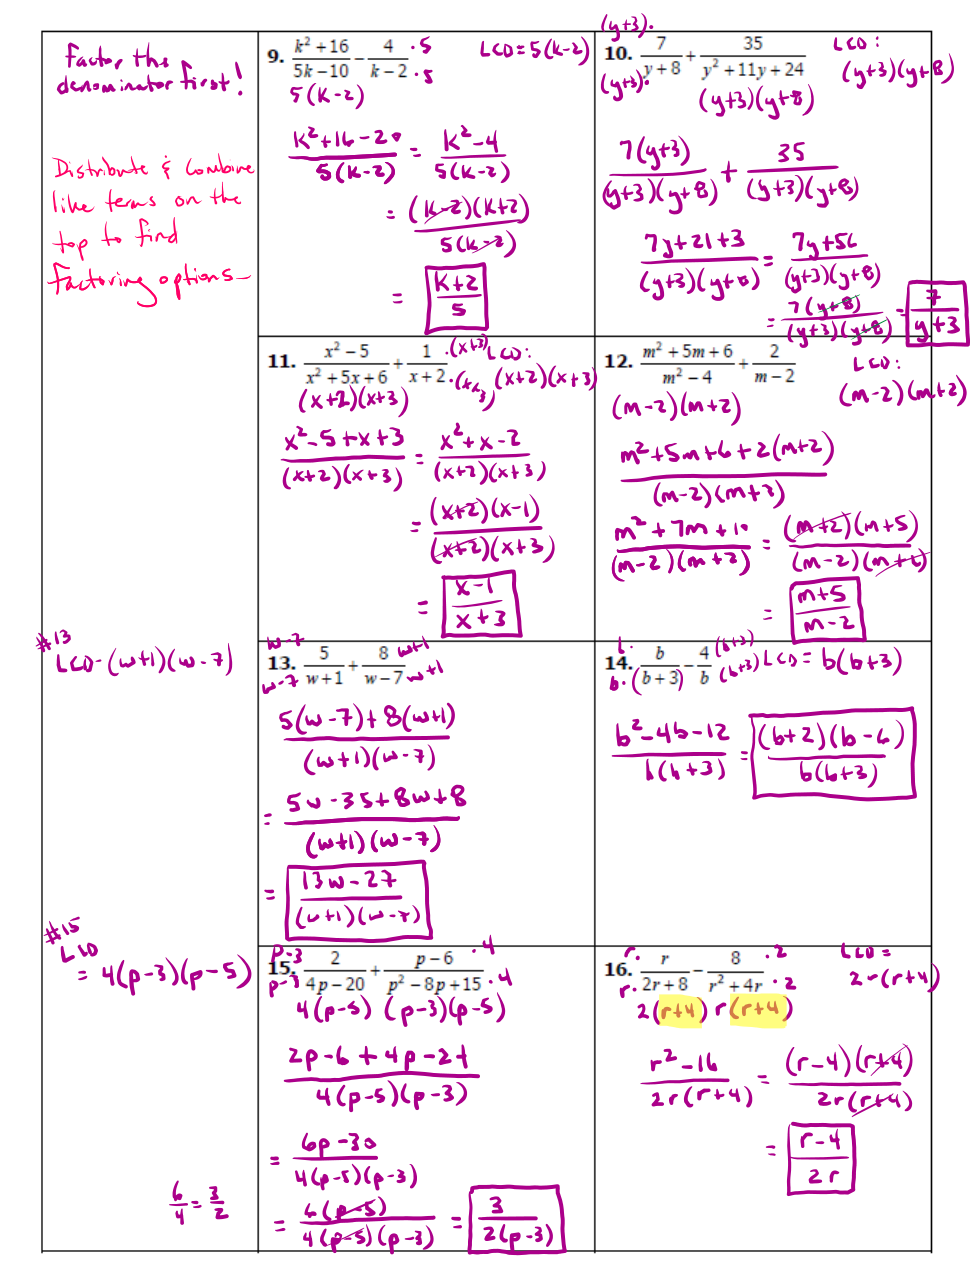 Factor the
denominator first!
Distribute & Combine
like terms on the
top to find
factoring options
9. (k² + 16)/(5k − 10) − 4/(k − 2) · 5 / · 5
LCD = 5(k-2)
5(k-2)
(k²+16-20)/(5(k-2)) = (k²-4)/(5(k-2))
= ((k-2)(k+2))/(5(k-2))
= (k+2)/5
(y+3)·
10. 7/(y + 8) + 35/(y² + 11y + 24)
(y+3)·
LCD:
(y+3)(y+8)
(y+3)(y+8)
7(y+3)/((y+3)(y+8)) + 35/((y+3)(y+8))
(7y+21+3)/((y+3)(y+8)) = (7y+56)/((y+3)(y+8))
= 7(y+8)/((y+3)(y+8)) = 7/(y+3)
11. (x² − 5)/(x² + 5x + 6) + 1/(x + 2) ·(x+3) / ·(x+3)
LCD:
(x+2)(x+3)
(x+2)(x+3)
(x²-5+x+3)/((x+2)(x+3)) = (x²+x-2)/((x+2)(x+3))
= ((x+2)(x-1))/((x+2)(x+3))
= (x-1)/(x+3)
12. (m² + 5m + 6)/(m² − 4) + 2/(m − 2)
LCD:
(m-2)(m+2)
(m-2)(m+2)
(m²+5m+6+2(m+2))/((m-2)(m+2))
(m²+7m+10)/((m-2)(m+2)) = ((m+2)(m+5))/((m-2)(m+2))
= (m+5)/(m-2)
#13
LCD-(w+1)(w-7)
13. w-7 / w-7 5/(w + 1) + 8/(w − 7) w+1 / w+1
(5(w-7)+8(w+1))/((w+1)(w-7))
= (5w-35+8w+8)/((w+1)(w-7))
= (13w-27)/((w+1)(w-7))
14. b· / b· b/(b + 3) − 4/b (b+3) / (b+3)
LCD = b(b+3)
(b²-4b-12)/(b(b+3)) = ((b+2)(b-6))/(b(b+3))
#15
LCD
= 4(p-3)(p-5)
15. p-3 / p-3 2/(4p − 20) + (p − 6)/(p² − 8p + 15) · 4 / · 4
4(p-5) (p-3)(p-5)
(2p-6+4p-24)/(4(p-5)(p-3))
= (6p-30)/(4(p-5)(p-3))
6/4 = 3/2
= 6(p-5)/(4(p-5)(p-3)) = 3/(2(p-3))
16. r· / r· r/(2r + 8) − 8/(r² + 4r) · 2 / · 2
LCD =
2r(r+4)
2(r+4) r(r+4)
(r²-16)/(2r(r+4)) = ((r-4)(r+4))/(2r(r+4))
= (r-4)/(2r)